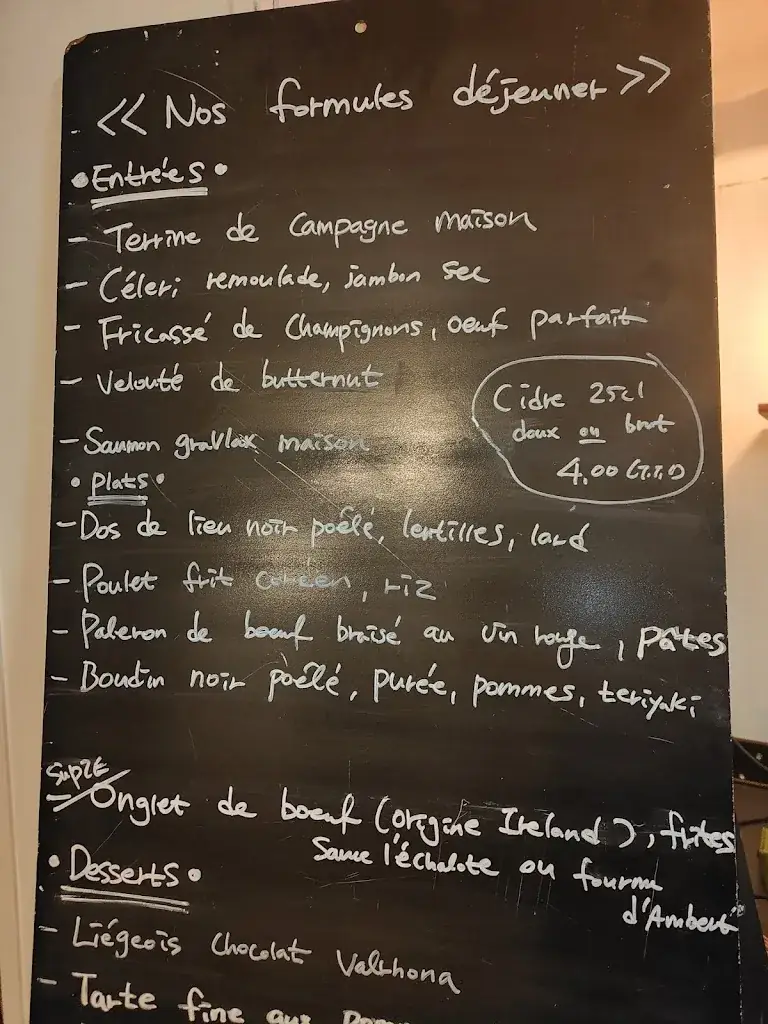 << Nos formules déjeuner >>
• Entrées •
- Terrine de Campagne maison
- Céleri remoulade, jambon sec
- Fricassé de Champignons, oeuf parfait
- Velouté de butternut
Cidre 25cl
doux ou brut
4.00 (T.T.C)
- Saumon gravlax maison
• Plats •
- Dos de lieu noir poêlé, lentilles, lard
- Poulet frit coréen, riz
- Paleron de boeuf braisé au vin rouge, pâtes
- Boudin noir poêlé, purée, pommes, teriyaki
sup 2€
- Onglet de boeuf (origine Ireland), frites
Sauce l'échalote ou fourme
d'Ambert
• Desserts •
- Liégeois chocolat Valrhona
- Tarte fine aux